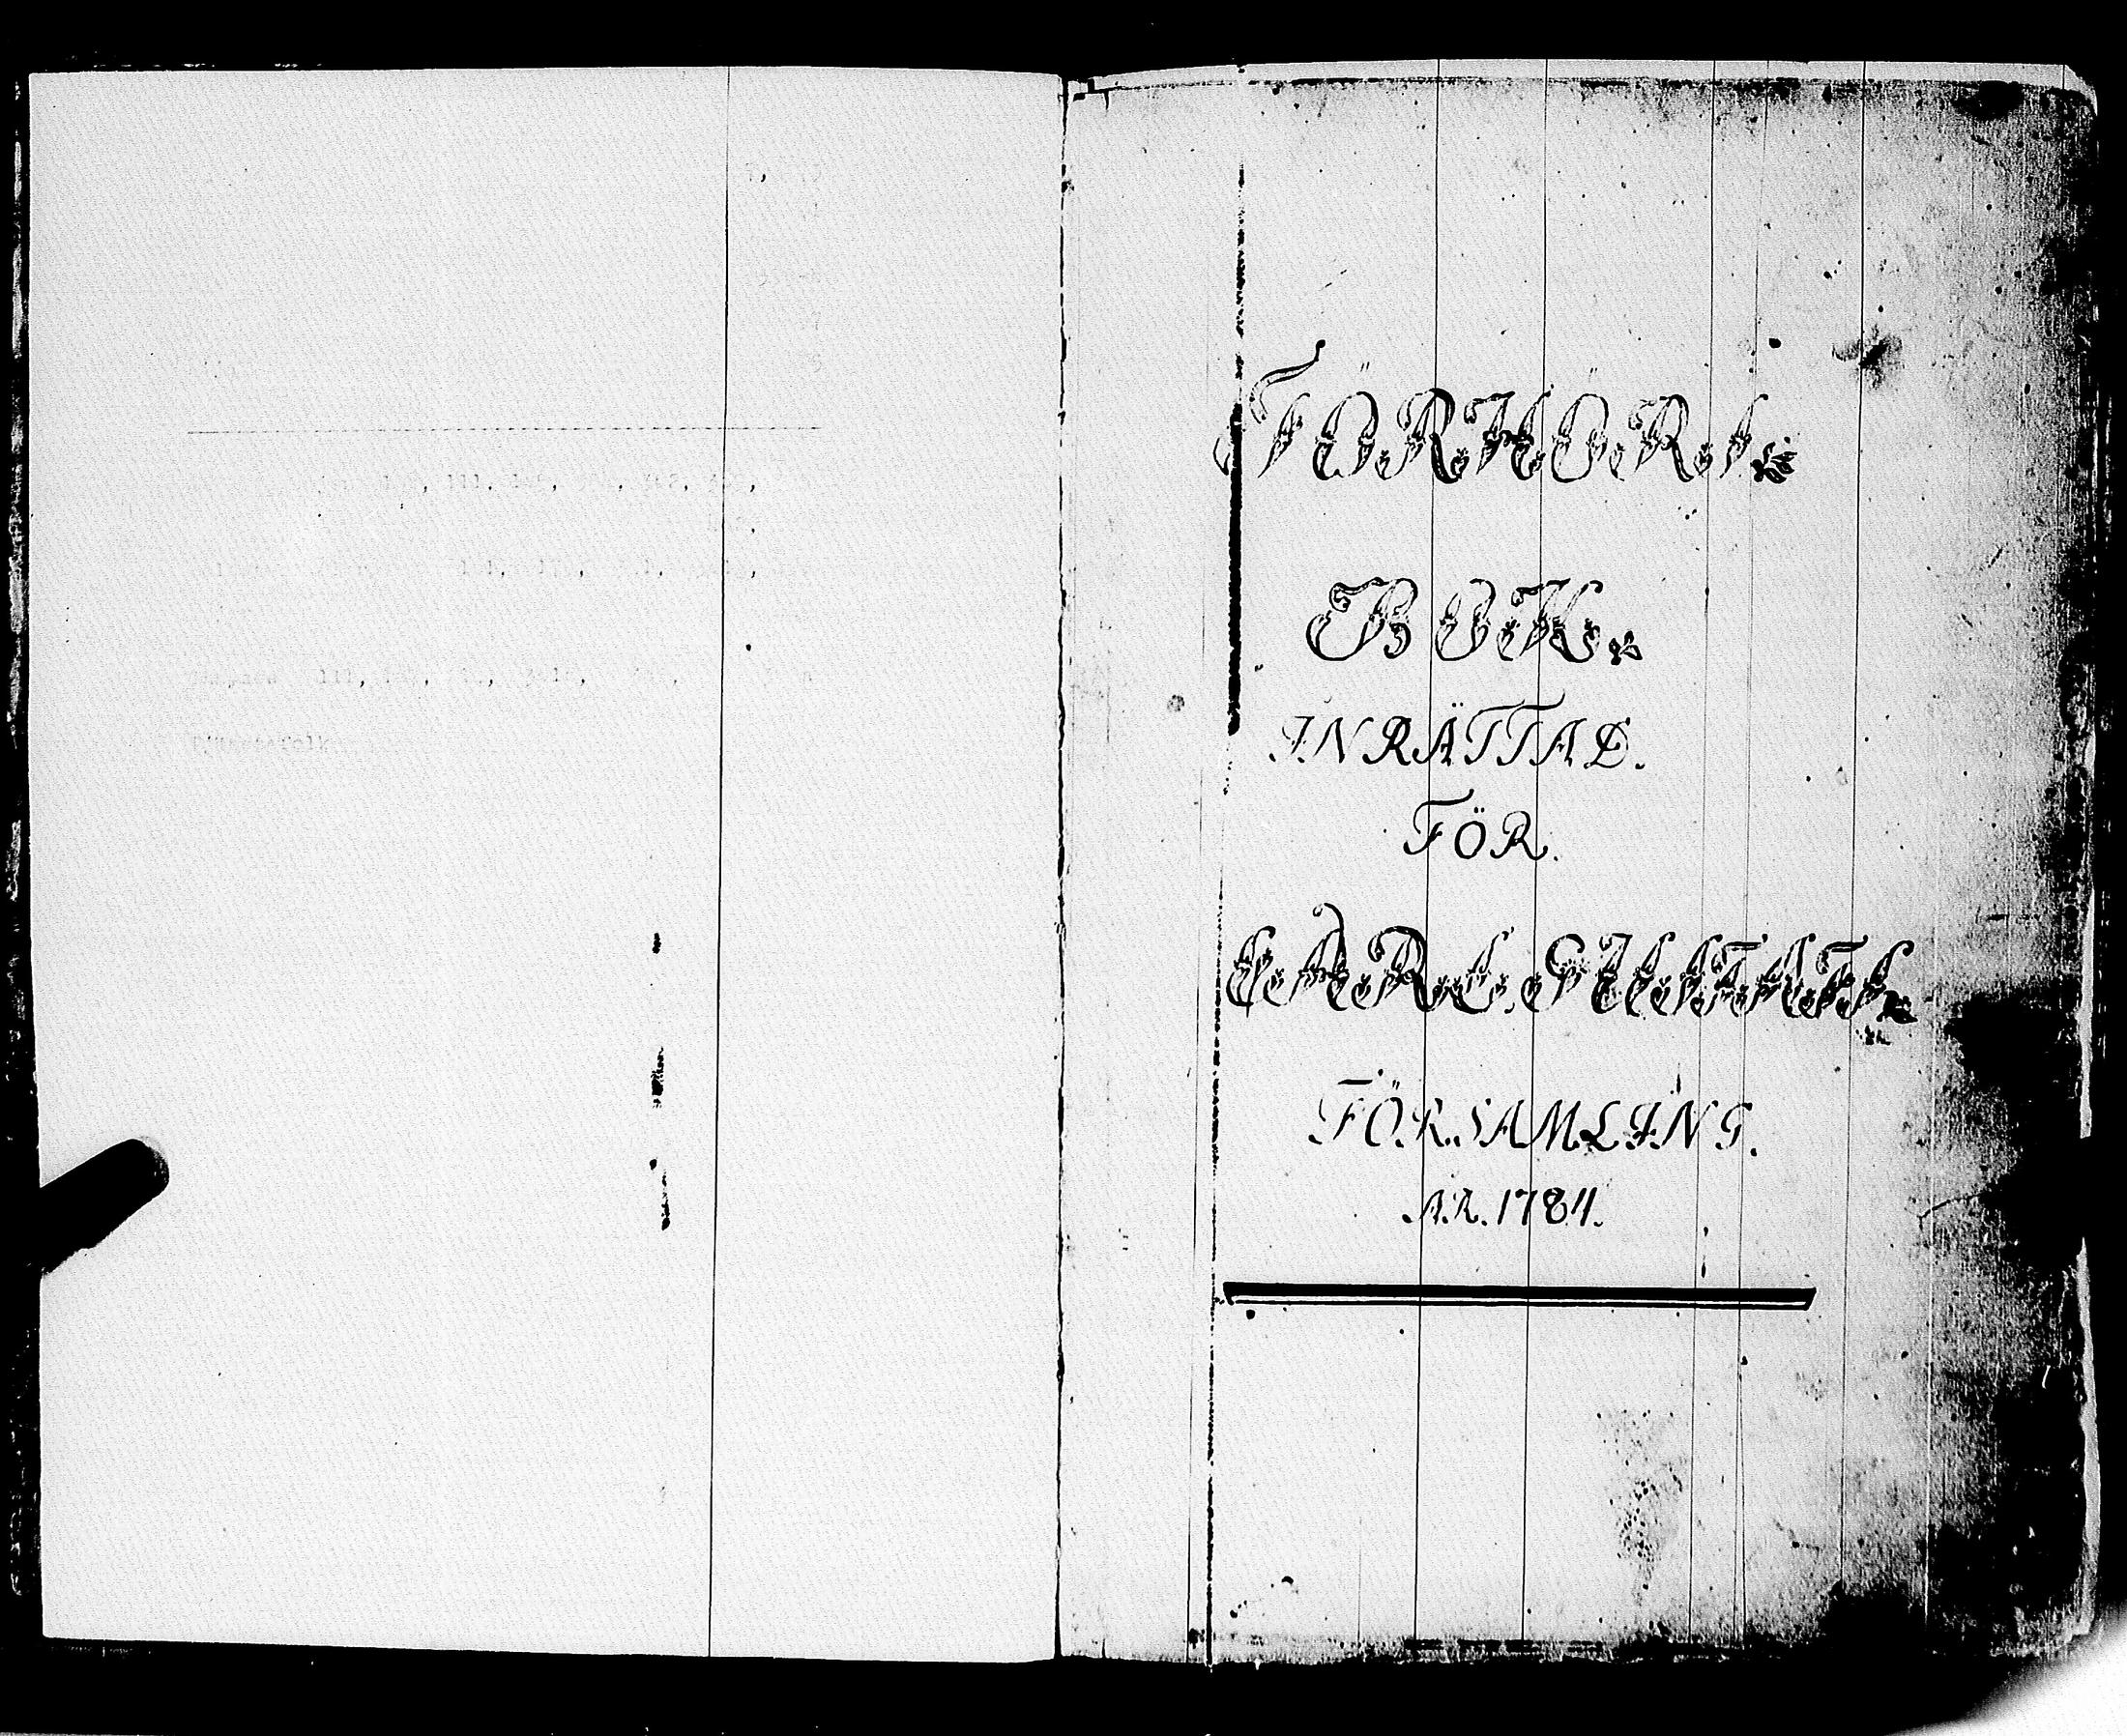 FÖRHÖRS
BOK.
INRÄTTAD.
FÖR.
CARL GUSTAFS
FÖRSAMLING.
AR. 1784.